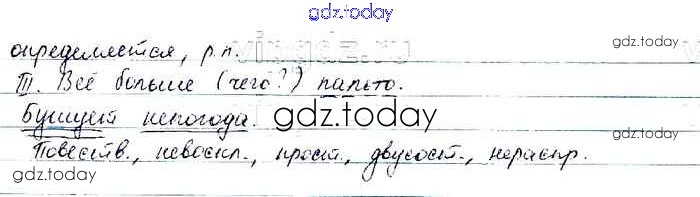 gdz.today
определяется, р.п. vipgdz.ru gdz.today
III. Всё больше (чего?) пальто.
Бушует непогода. gdz.today gdz.today
Повеств., невоскл., прост., двусост., нераспр.
gdz.today gdz.today